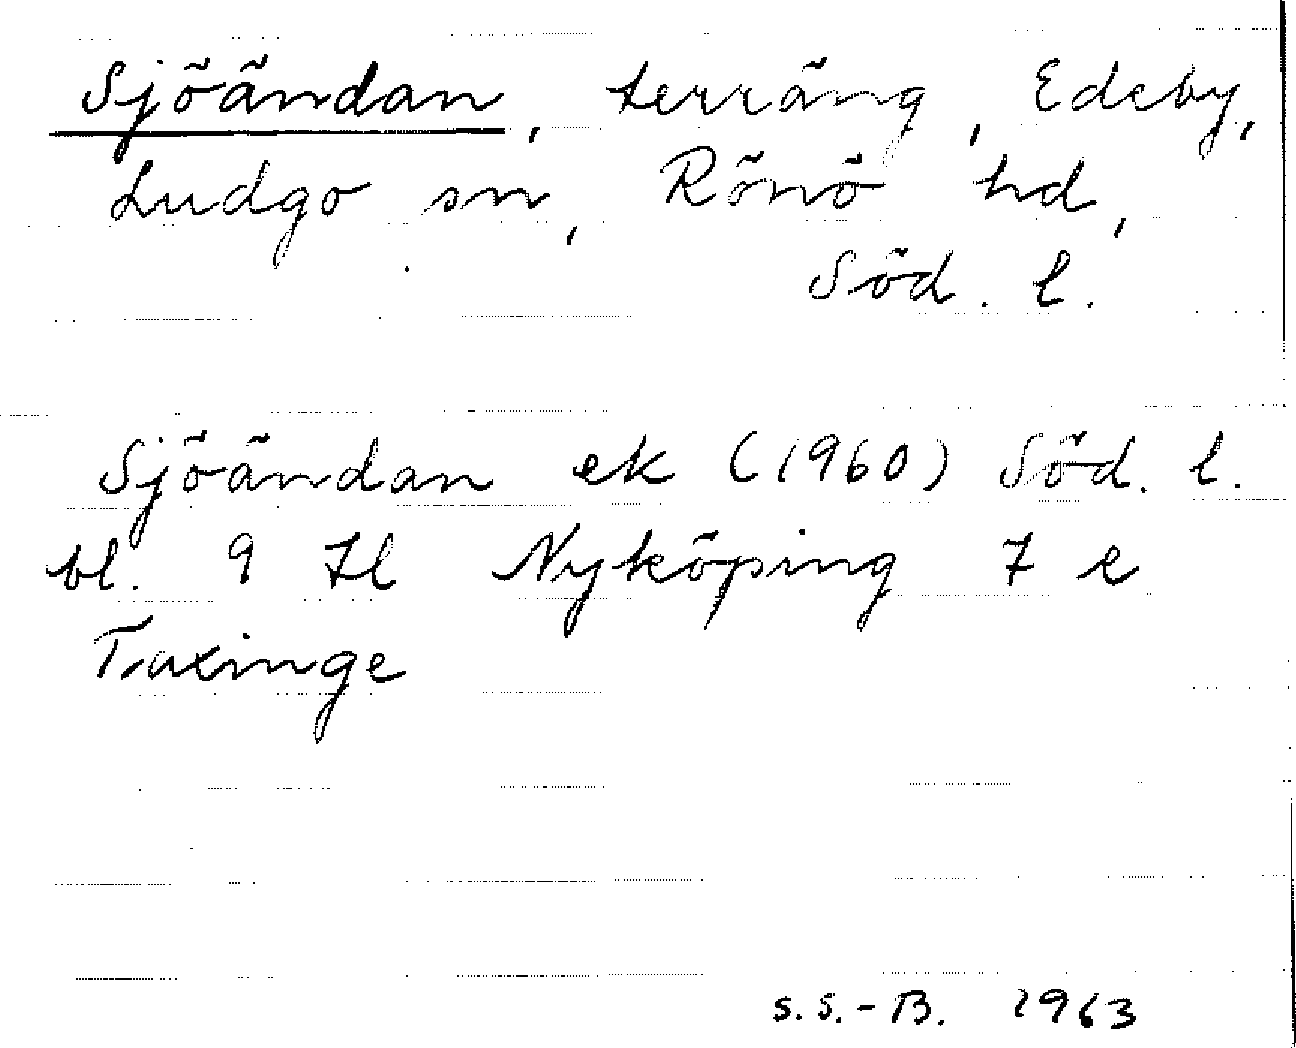 Sjöändan, terräng, Edeby,
Ludgo sn, Rönö hd,
Söd. l.
Sjöändan ek (1960) Söd. l.
bl. 9 Il Nyköping 7 e
Taxinge
S.S.-B. 1963